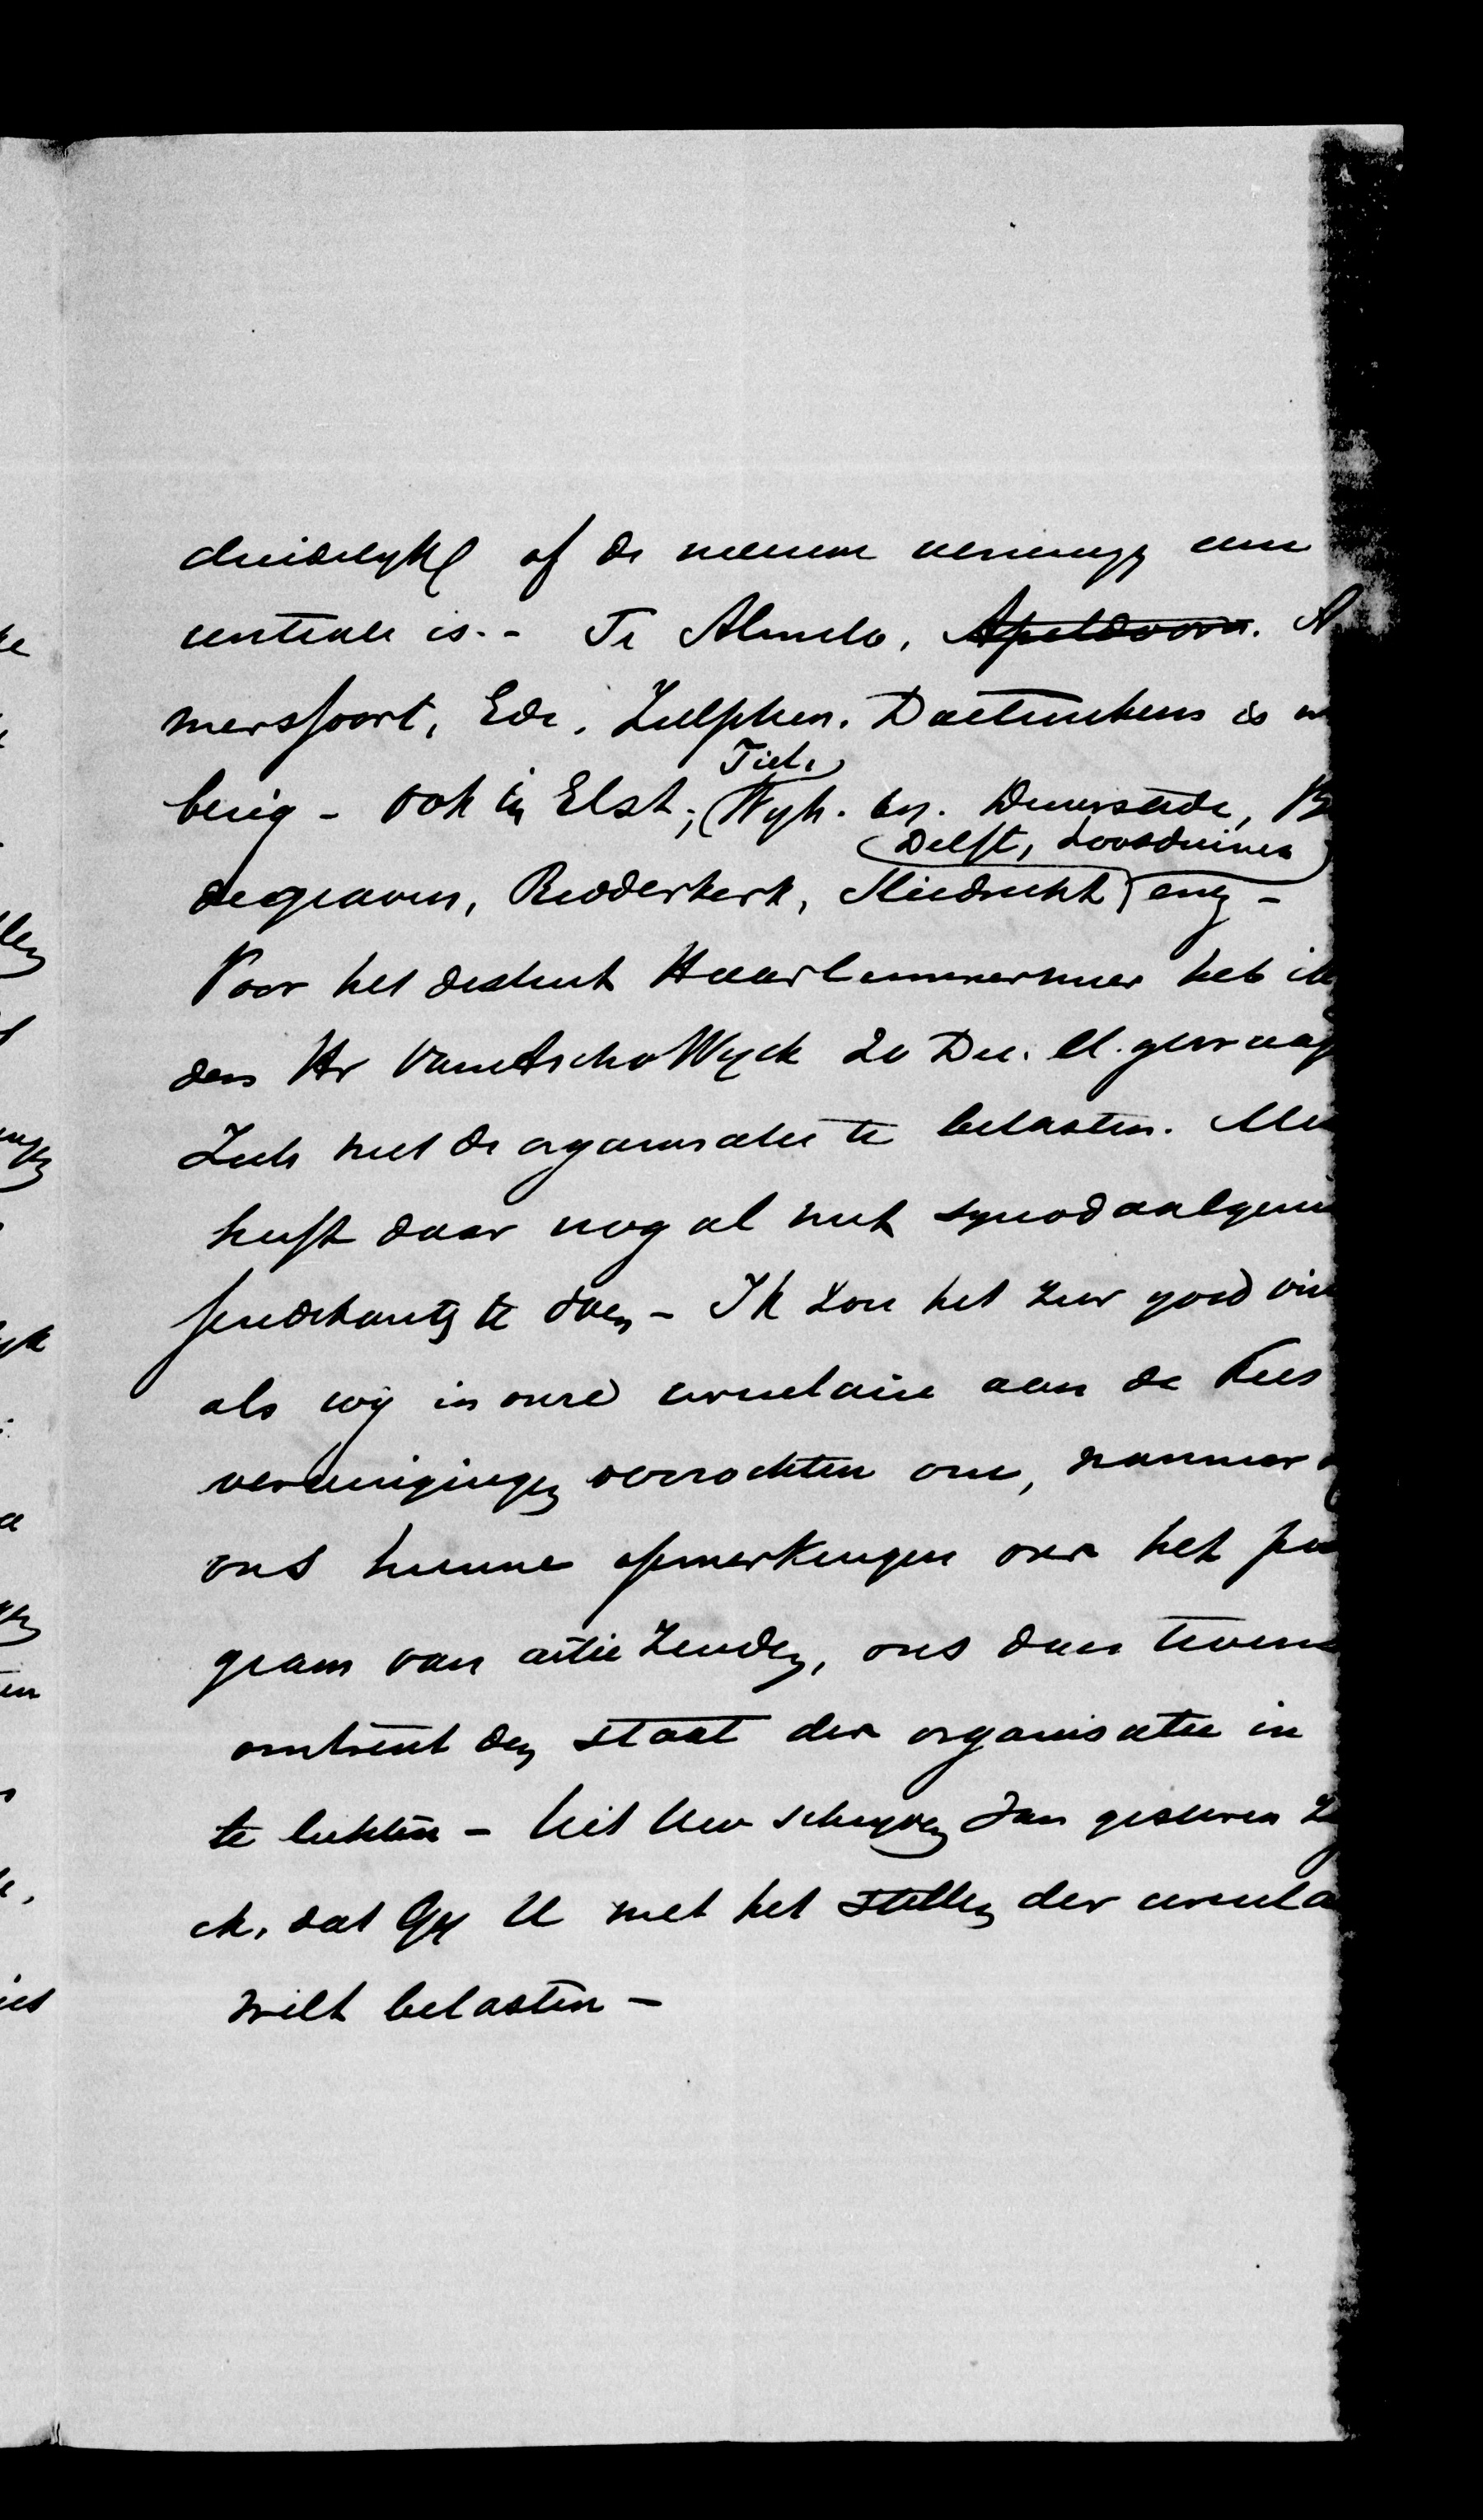 duidelijk of de nieuwe vereenigg een
centrale is. - Te Almelo, Apeldoorn. A
mersfoort, Ede, Zutphen. Doetinchem is m
bezig - ook in Elst, Wyk. bij. Duurstede, B
Tiel,
degraven, Ridderkerk, Sliedrecht enz -
Delft, Loosduinen
Voor het district Haarlemmermeer heb ik
den Hr van Asch v Wyck 20 Dec. ll. gevraag
Zich met de organisatie te belasten. Men
heeft daar nog al met synodaalgezin
te doen - Ik zou het zeer goed vin
als wij in onze circulaire aan de Kies
vereenigingen verzochten om, wanneer
ons hunne opmerkingen over het pro
gram van actie zenden, ons dan tevens
omtrent den staat der organisatie in
te lichten - Uit Uw schryven van gisteren
ik, dat Gij U met het stellen der circula
wilt belasten -